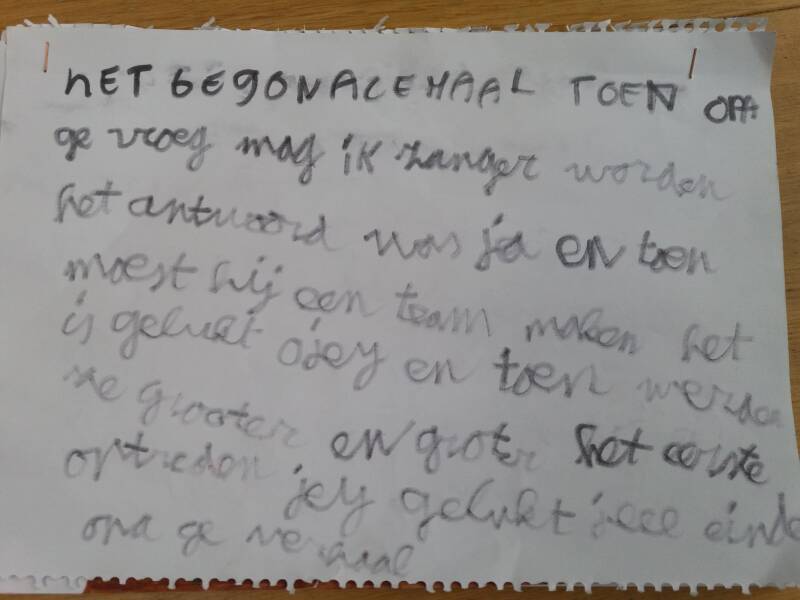 hET BEGONALEMAAL TOEN OPA
ge vroeg mag ik zanger worden
het antwoord was ja en toen
moest hij een team maken het
is gelukt ojey en toen werden
ze grooter en groter het eerste
optreden jey gelukt jeee einde
opa ge verhaal